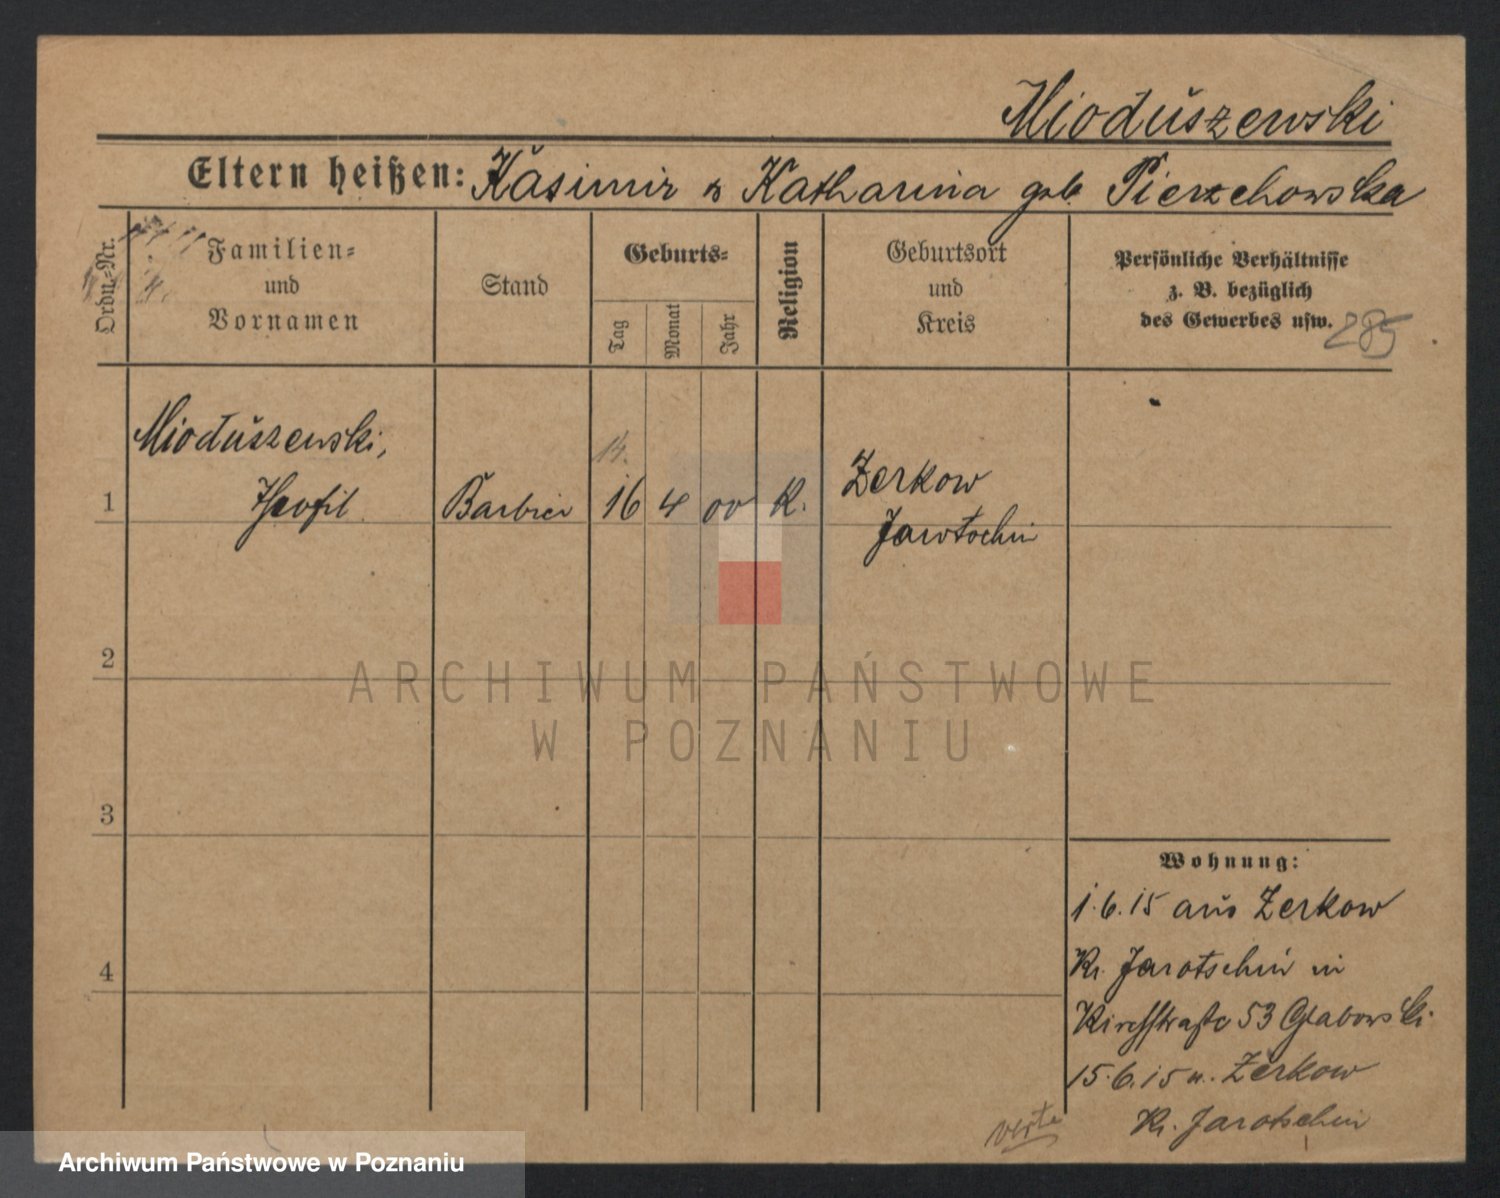 Mioduszewski
Eltern heißen: Kasimir & Katharina geb Pierzchowska
Ordn.-Nr.
Familien-
und
Vornamen
Stand
Geburts-
Tag
Monat
Jahr
Religion
Geburtsort
und
Kreis
Persönliche Verhältnisse
z. B. bezüglich
des Gewerbes usw.
285
Mioduszewski,
1
Barbier
14.
16 4 00 K.
Zerkow
Jarotschin
2
3
4
Wohnung:
1.6.15 aus Zerkow
Kr. Jarotschin in
Kirchstraße 53 Grabowski
15.6.15 n. Zerkow
Kr. Jarotschin
verte
ARCHIWUM PAŃSTWOWE
W POZNANIU
Archiwum Państwowe w Poznaniu